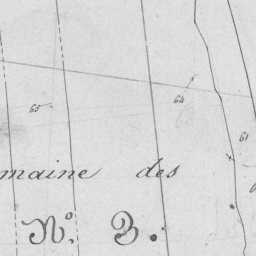 65
64
61
maine des
N.o 3.